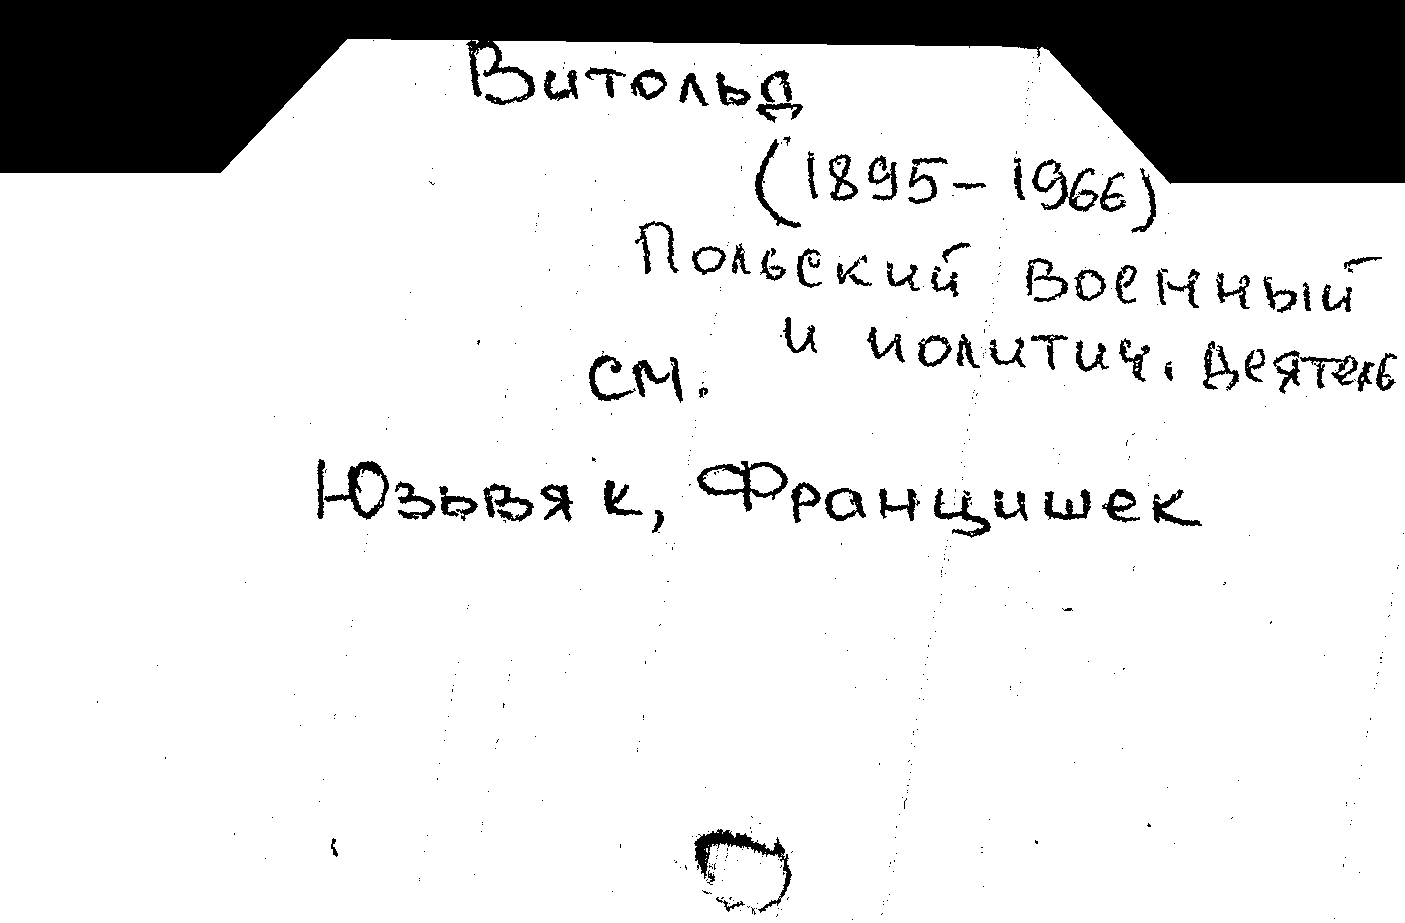 Витольд
(1895-1966)
Польский военный
и политич. деятель
см.
Юзьвяк, Францишек